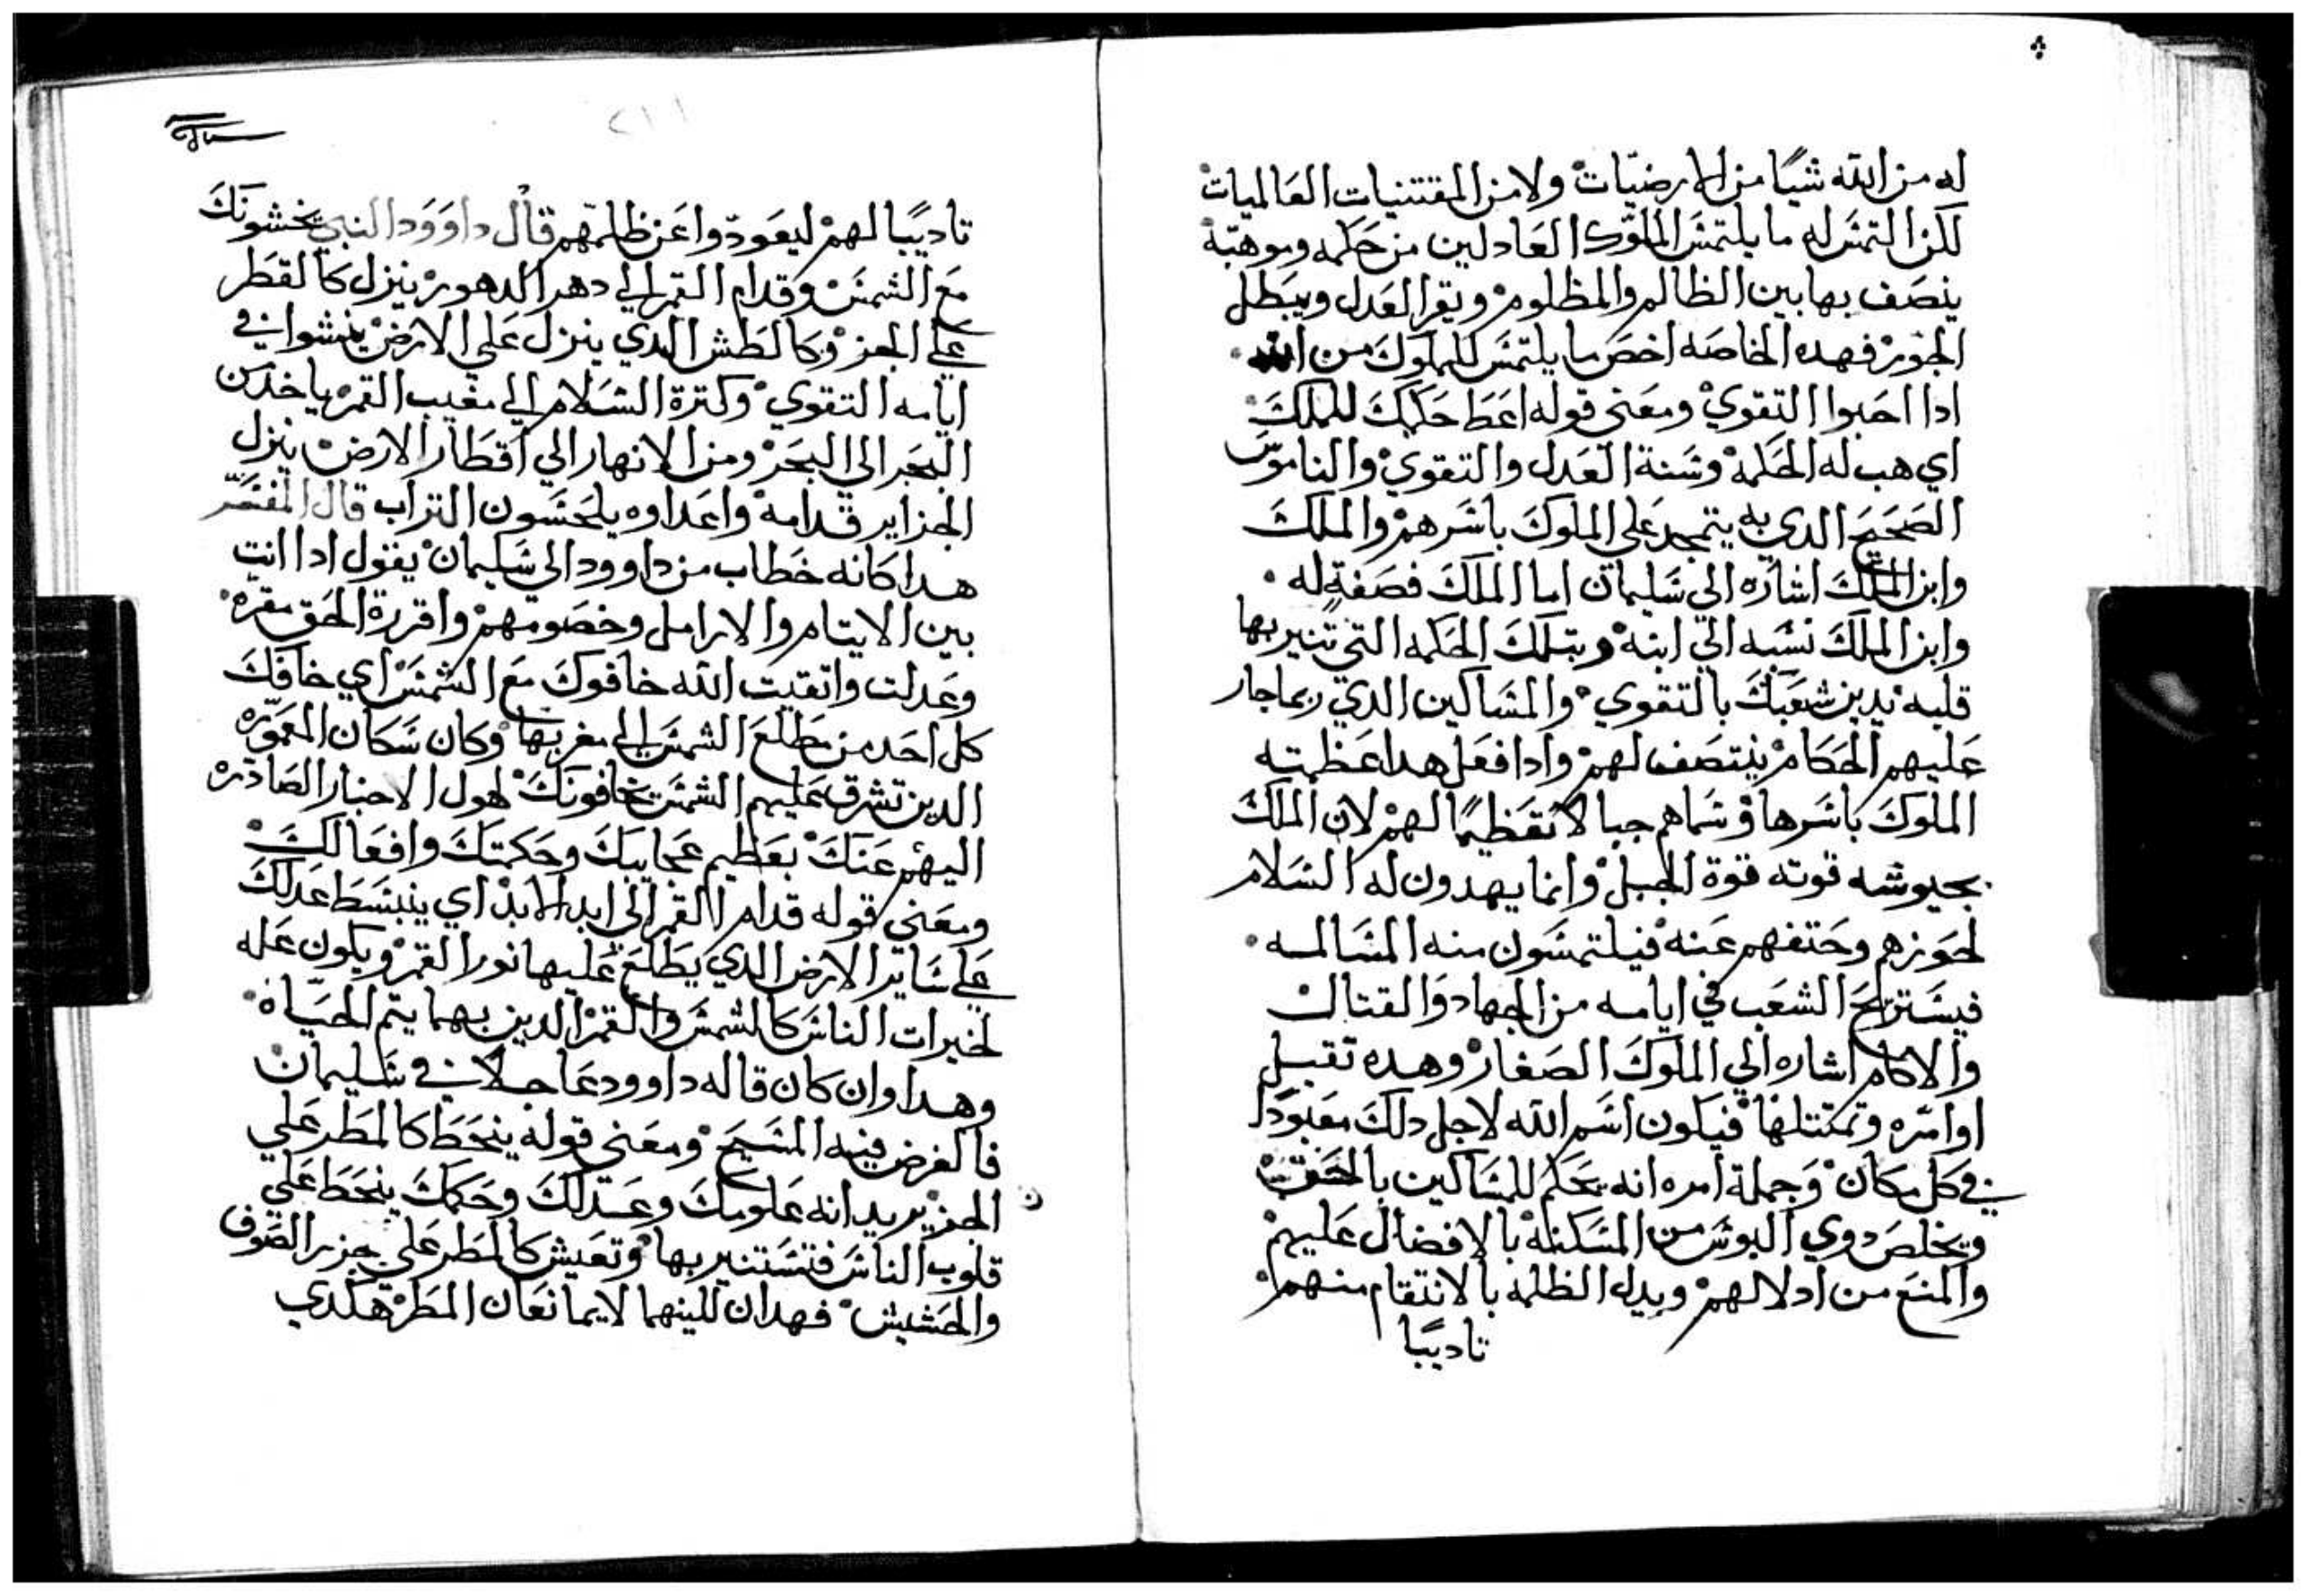 له من الله شيًا من الارضيات ولا من المقتنيات العالميات
لكن التمس له ما يلتمس الملوك العادلين من حكمه وموهبة
ينصف بها بين الظالم والمظلوم ويقر العدل ويبطل
الجور فهده الخاصه اخص ما يلتمس للملوك من الله
ادا احبوا التقوي ومعني قوله اعط حكمك للملك
اي هب له الحكمة وسنة العدل والتقوي والناموس
الصحيح الدي به يتمجد علي الملوك باسرهم والملك
وابن الملك اشاره الي سليمان اما الملك فصفة له
وابن الملك نسبه الي ابنه وبتلك الحكمه التي تنير بها
قلبه يدين شعبك بالتقوي والمساكين الدي ربما جار
عليهم الحكام ينتصف لهم وادا فعل هدا عظمته
الملوك باسرها وسماهم جبالا تعظيمًا لهم لان الملك
بجيوشه قوته قوة الجبل وانما يهدون له السلام
لحوزهم وحتفهم عنه فيلتمسون منه المسالمه
فيستريح الشعب في ايامه من الجهاد والقتال
والاكام اشاره الي الملوك الصغار وهده تقبل
اوامره وتمتتلها فيكون اسم الله لاجل دلك معبودًا
في كل مكان وجملة امره انه يحكم للمساكين بالحق
ويخلص دوي البوس من المسكنة بالافضال عليهم
والمنع من ادلالهم ويدل الظلمه بالانتقام منهم
تاديبًا
تاديبًا لهم ليعودوا عن ظلمهم قال داوود النبي يخشونك
مع الشمس وقدام القمر الي دهر الدهور ينزل كالقطر
علي الجز وكالطش الدي ينزل علي الارض ينشوا في
ايامه التقوي وكترة السلام الي مغيب القمر ياخد من
البحر الي البحر ومن الانهار الي اقطار الارض ينزل
الجزاير قدامه واعداوه يلحسون التراب قال المفسر
هدا كانه خطاب من داوود الي سليمان يقول ادا انت
بين الايتام والارامل وخصومهم واقررة الحق مقره
وعدلت واتقيت الله خافوك مع الشمس اي خافك
كل احد من مطلع الشمس الي مغربها وكان سكان المعموره
الدين تشرق عليهم الشمس يخافونك لهول الاخبار الصادره
اليهم عنك بعظيم عجايبك وحكمتك وافعالك
ومعني قوله قدام القمر الي ابد الابد اي ينبسط عدلك
علي ساير الارض الدي يطلع عليها نور القمر ويكون عله
لخيرات الناس كالشمس والقمر الدين بهما يتم الحياه
وهدا وان كان قاله داوود عاجلا في سليمان
فالغرض فيه المسيح ومعني قوله ينحط كالمطر علي
الجز يريد انه علومك وعدلك وحكمك ينحط علي
قلوب الناس فتستنير بها وتعيش كالمطر علي جزر الصوف
والحشيش فهدان للينهما لا يمانعان المطر هكدي